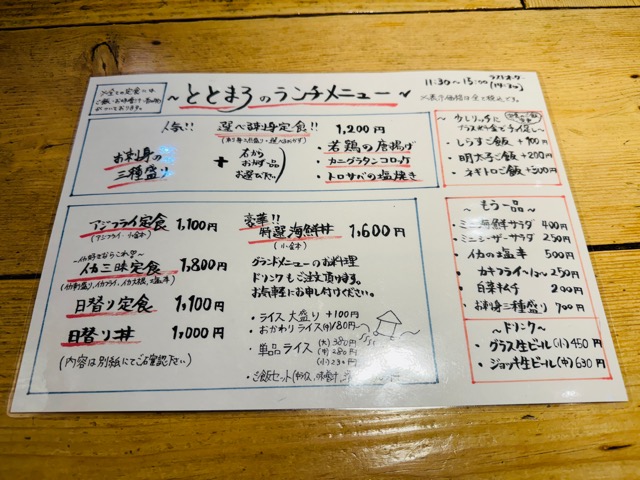 ~ととまろのランチメニュー~
11:30~15:00
※表示価格は全て税込です。
※全ての定食には
ご飯・お味噌汁・
がついております。
人気!! 選べる刺身定食!! 1,200円
お刺身の
三種盛り
+
右から
おかず一品
お選び下さい
・若鶏の唐揚げ
・カニグラタンコロッケ
・トロサバの塩焼き
少しリッチに
プラス料金で
・しらすご飯 +100円
・明太子ご飯 +200円
・ネギトロご飯 +300円
アジフライ定食 1,100円
(アジフライ・小鉢)
イカ三昧定食 1,800円
日替り定食 1,100円
日替り丼 1,000円
(内容は別紙にてご確認下さい)
豪華!!
特選海鮮丼 1,600円
(小鉢)
グランドメニューのお料理
ドリンクもご注文頂けます。
お気軽にお申し付けください。
・ライス大盛り +100円
・おかわりライス(中)180円
・単品ライス (大)380円
(中)280円
(小)230円
・ご飯セット
~もう一品~
・ミニ海鮮サラダ 400円
・ミニシーザーサラダ 250円
・イカの塩辛 500円
・カキフライ 250円
・白菜キムチ 200円
・お刺身三種盛り 700円
~ドリンク~
・グラス生ビール(小)450円
・ジョッキ生ビール(中)630円